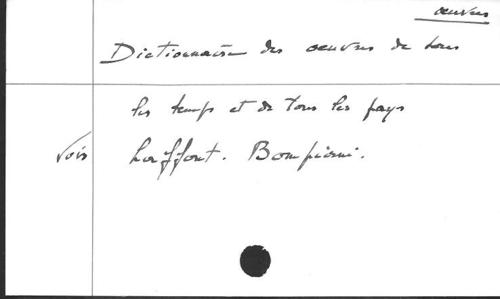 œuvres
Dictionnaire des œuvres de tous
les temps et de tous les pays
voir Laffont. Bompiani.